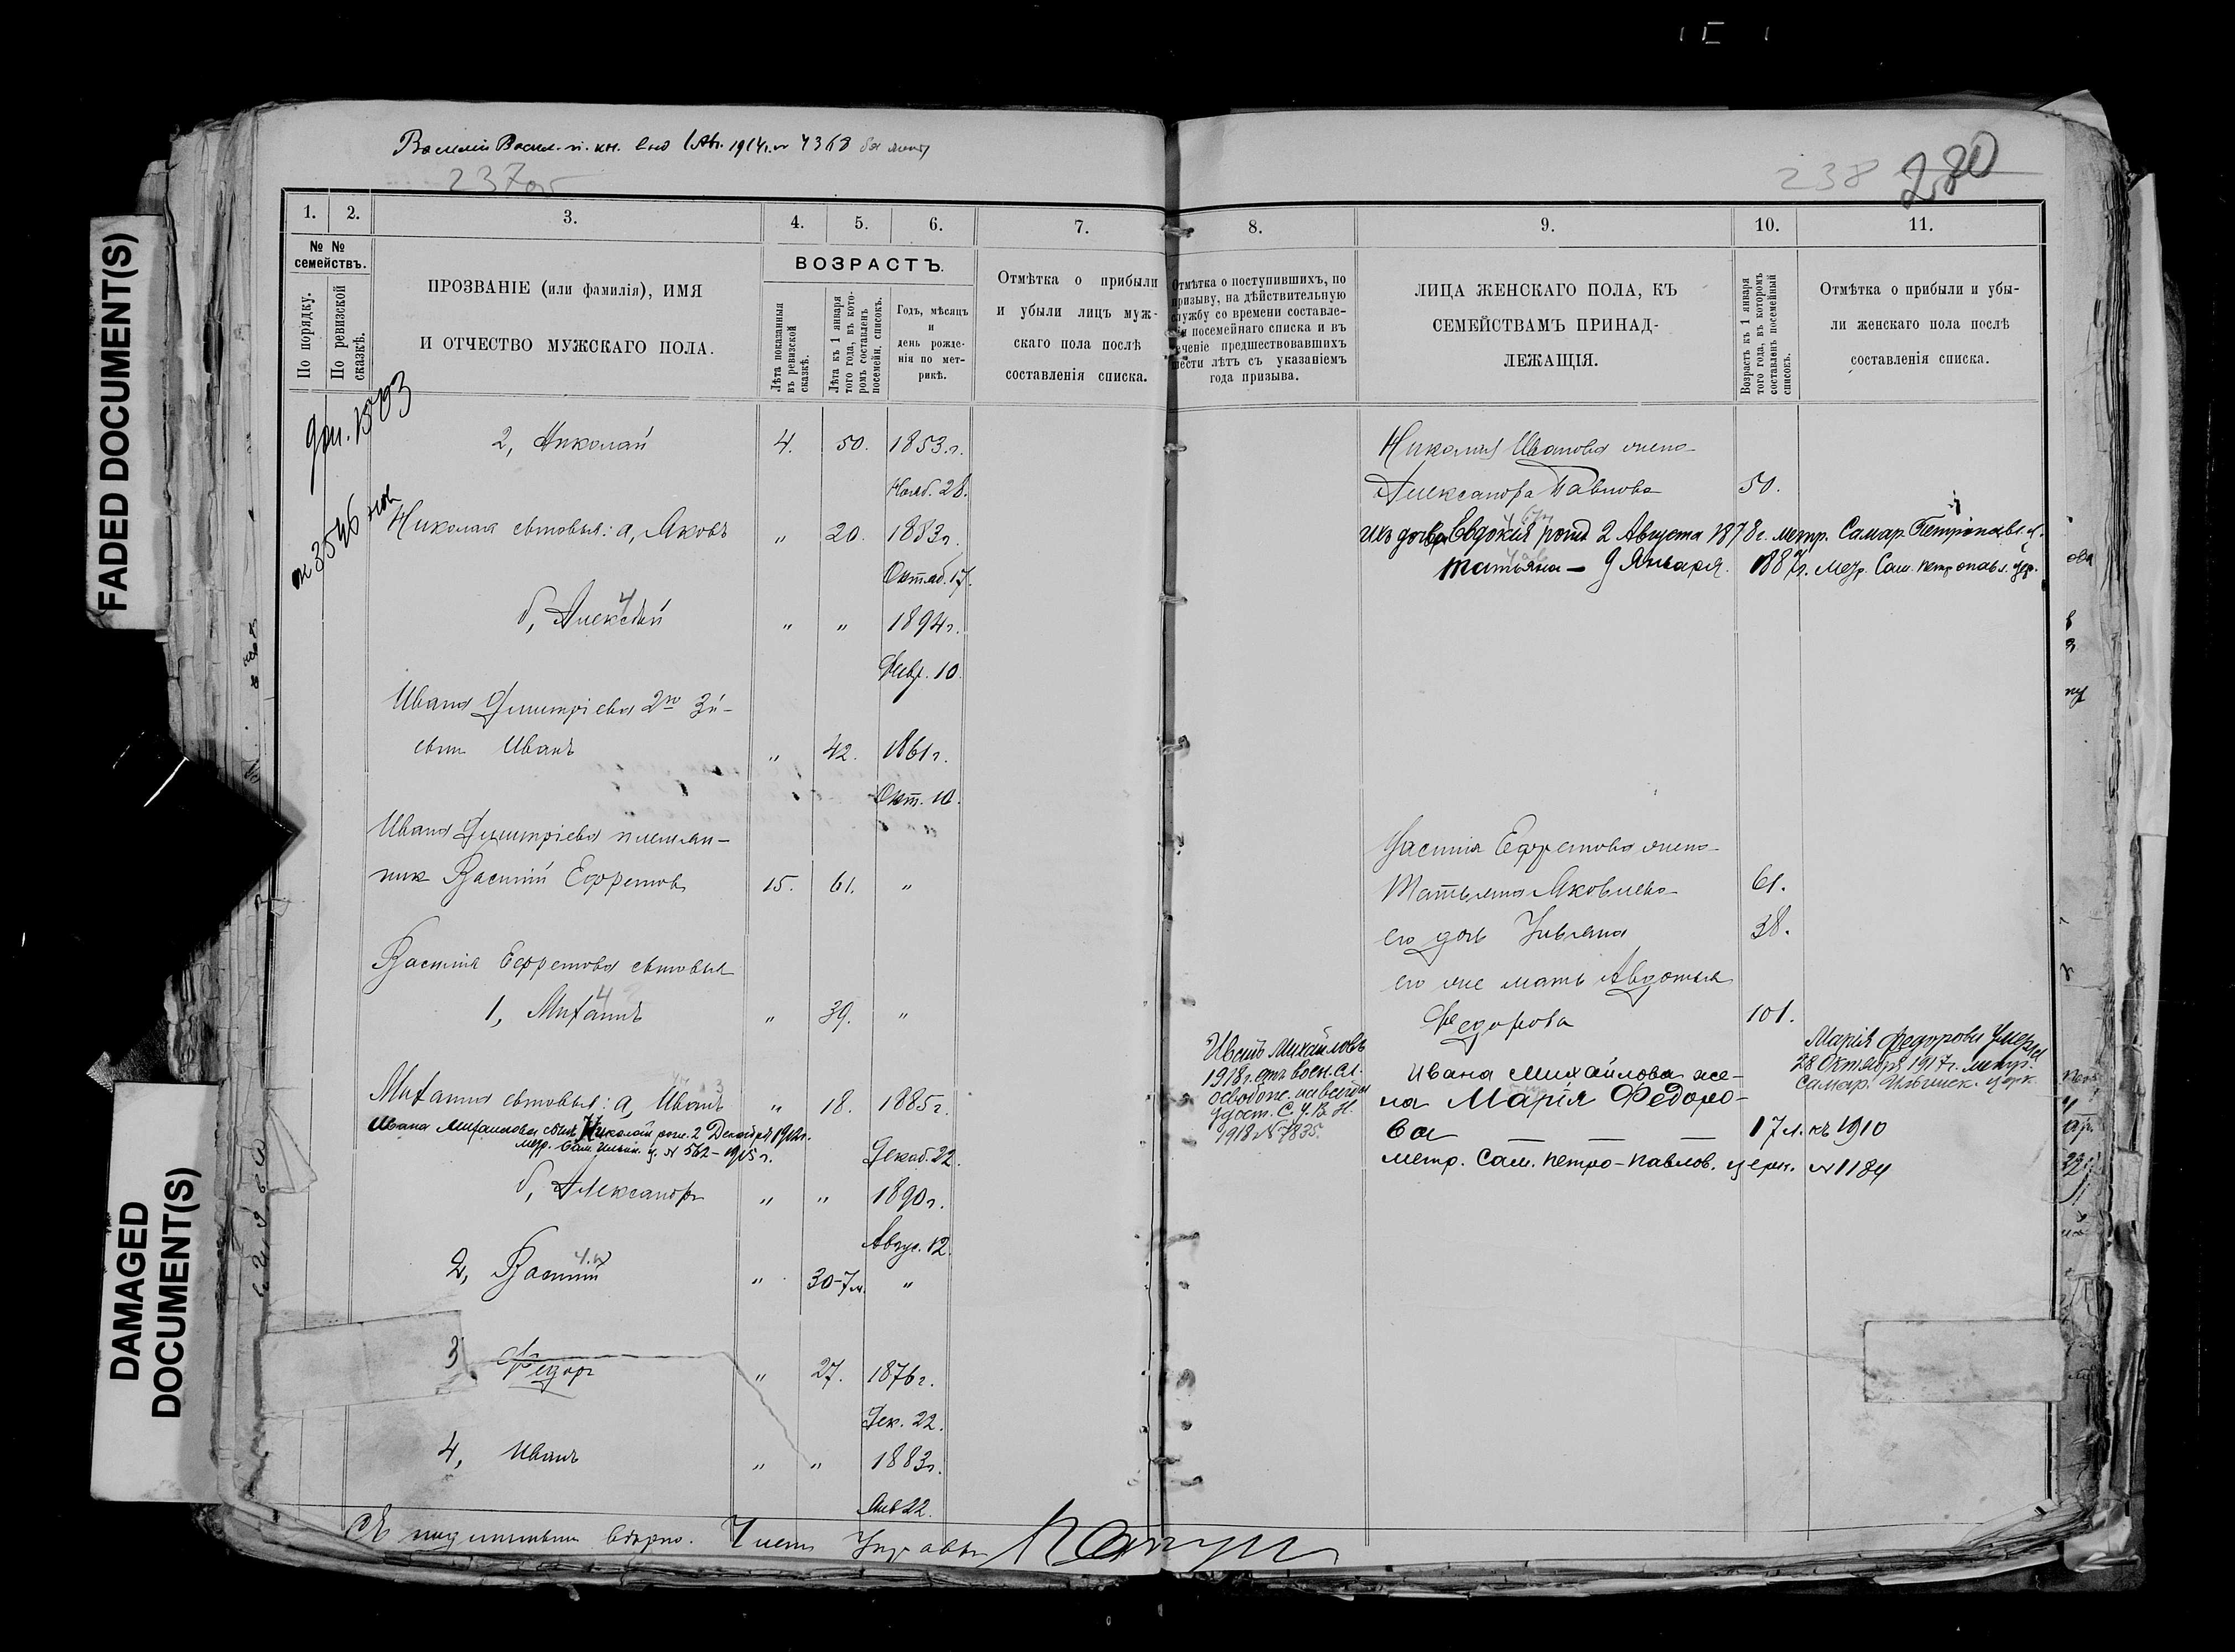 FADED DOCUMENT(S)
DAMAGED DOCUMENT(S)
1914 г. № 4368
237об
238 280
1. 2. 3. 4. 5. 6. 7.
№ № семействъ.
По порядку.
По ревизской сказкѣ.
ПРОЗВАНІЕ (или фамилія), ИМЯ
И ОТЧЕСТВО МУЖСКАГО ПОЛА.
ВОЗРАСТЪ.
Лѣта показанныя въ ревизской сказкѣ.
Лѣта къ 1 января того года, въ которомъ составленъ посемейн. списокъ.
Годъ, мѣсяцъ и день рожденія по метрикѣ.
Отмѣтка о прибыли
и убыли лицъ муж-
скаго пола послѣ
составленія списка.
2, Николай 4. 50. 1853 г.
Нояб. 28.
Николая сыновья: а, Яковъ " 20. 1883 г.
Октяб. 17.
б, Алексѣй " " 1894 г.
Февр. 10.
Ивана Димитріева 2го 3й
сынъ Иванъ " 42. 1861 г.
Окт. 10.
Ивана Димитріева племян-
никъ Василій Ефремовъ 15. 61. "
Василія Ефремова сыновья
1, Михаилъ " 39. "
Михаила сыновья: а, Иванъ " 18. 1885 г.
Ивана Михаилова сынъ Николай род. 2 Декабря
№ 562 - 1915 г.
Декаб. 22.
б, Александръ " " 1890 г.
Авгус. 12.
2, Василій " 30-7м. "
3 Федоръ " 27. 1876 г.
Дек. 22.
4, Иванъ " " 1883 г.
Янв 22.
Съ подлиннымъ вѣрно. Членъ Управы
8. 9. 10. 11.
Отмѣтка о поступившихъ, по
призыву, на дѣйствительную
службу со времени составле-
нія посемейнаго списка и въ
теченіе предшествовавшихъ
шести лѣтъ съ указаніемъ
года призыва.
ЛИЦА ЖЕНСКАГО ПОЛА, КЪ
СЕМЕЙСТВАМЪ ПРИНАД-
ЛЕЖАЩІЯ.
Возрастъ къ 1 января того года, въ которомъ составленъ посемейный списокъ.
Отмѣтка о прибыли и убы-
ли женскаго пола послѣ
составленія списка.
Николая Иванова жена
Александра Павлова 50.
Евдокія рожд 2 Августа 1878 г. метр. Самар. Петропавл. ц.
Татьяна - 9 Января 1887 г. Сам. Петропавл. цер.
Василія Ефремова жена
Татьяна Яковлева 61.
его дочь 38.
его же мать Авдотья
Федорова 101.
Иванъ Михайловъ
1918 г. отъ воен. сл.
освобож. навсегда
1918 № 7835.
Ивана Михайлова же-
на Марія Федоро-
ва — — — 17 л. къ 1910
метр. Сам. Петро-Павлов. церк. № 1184
Марія Федорова умерла
28 Октября 1917 г. метр.
Самар. Ильинск. церк.